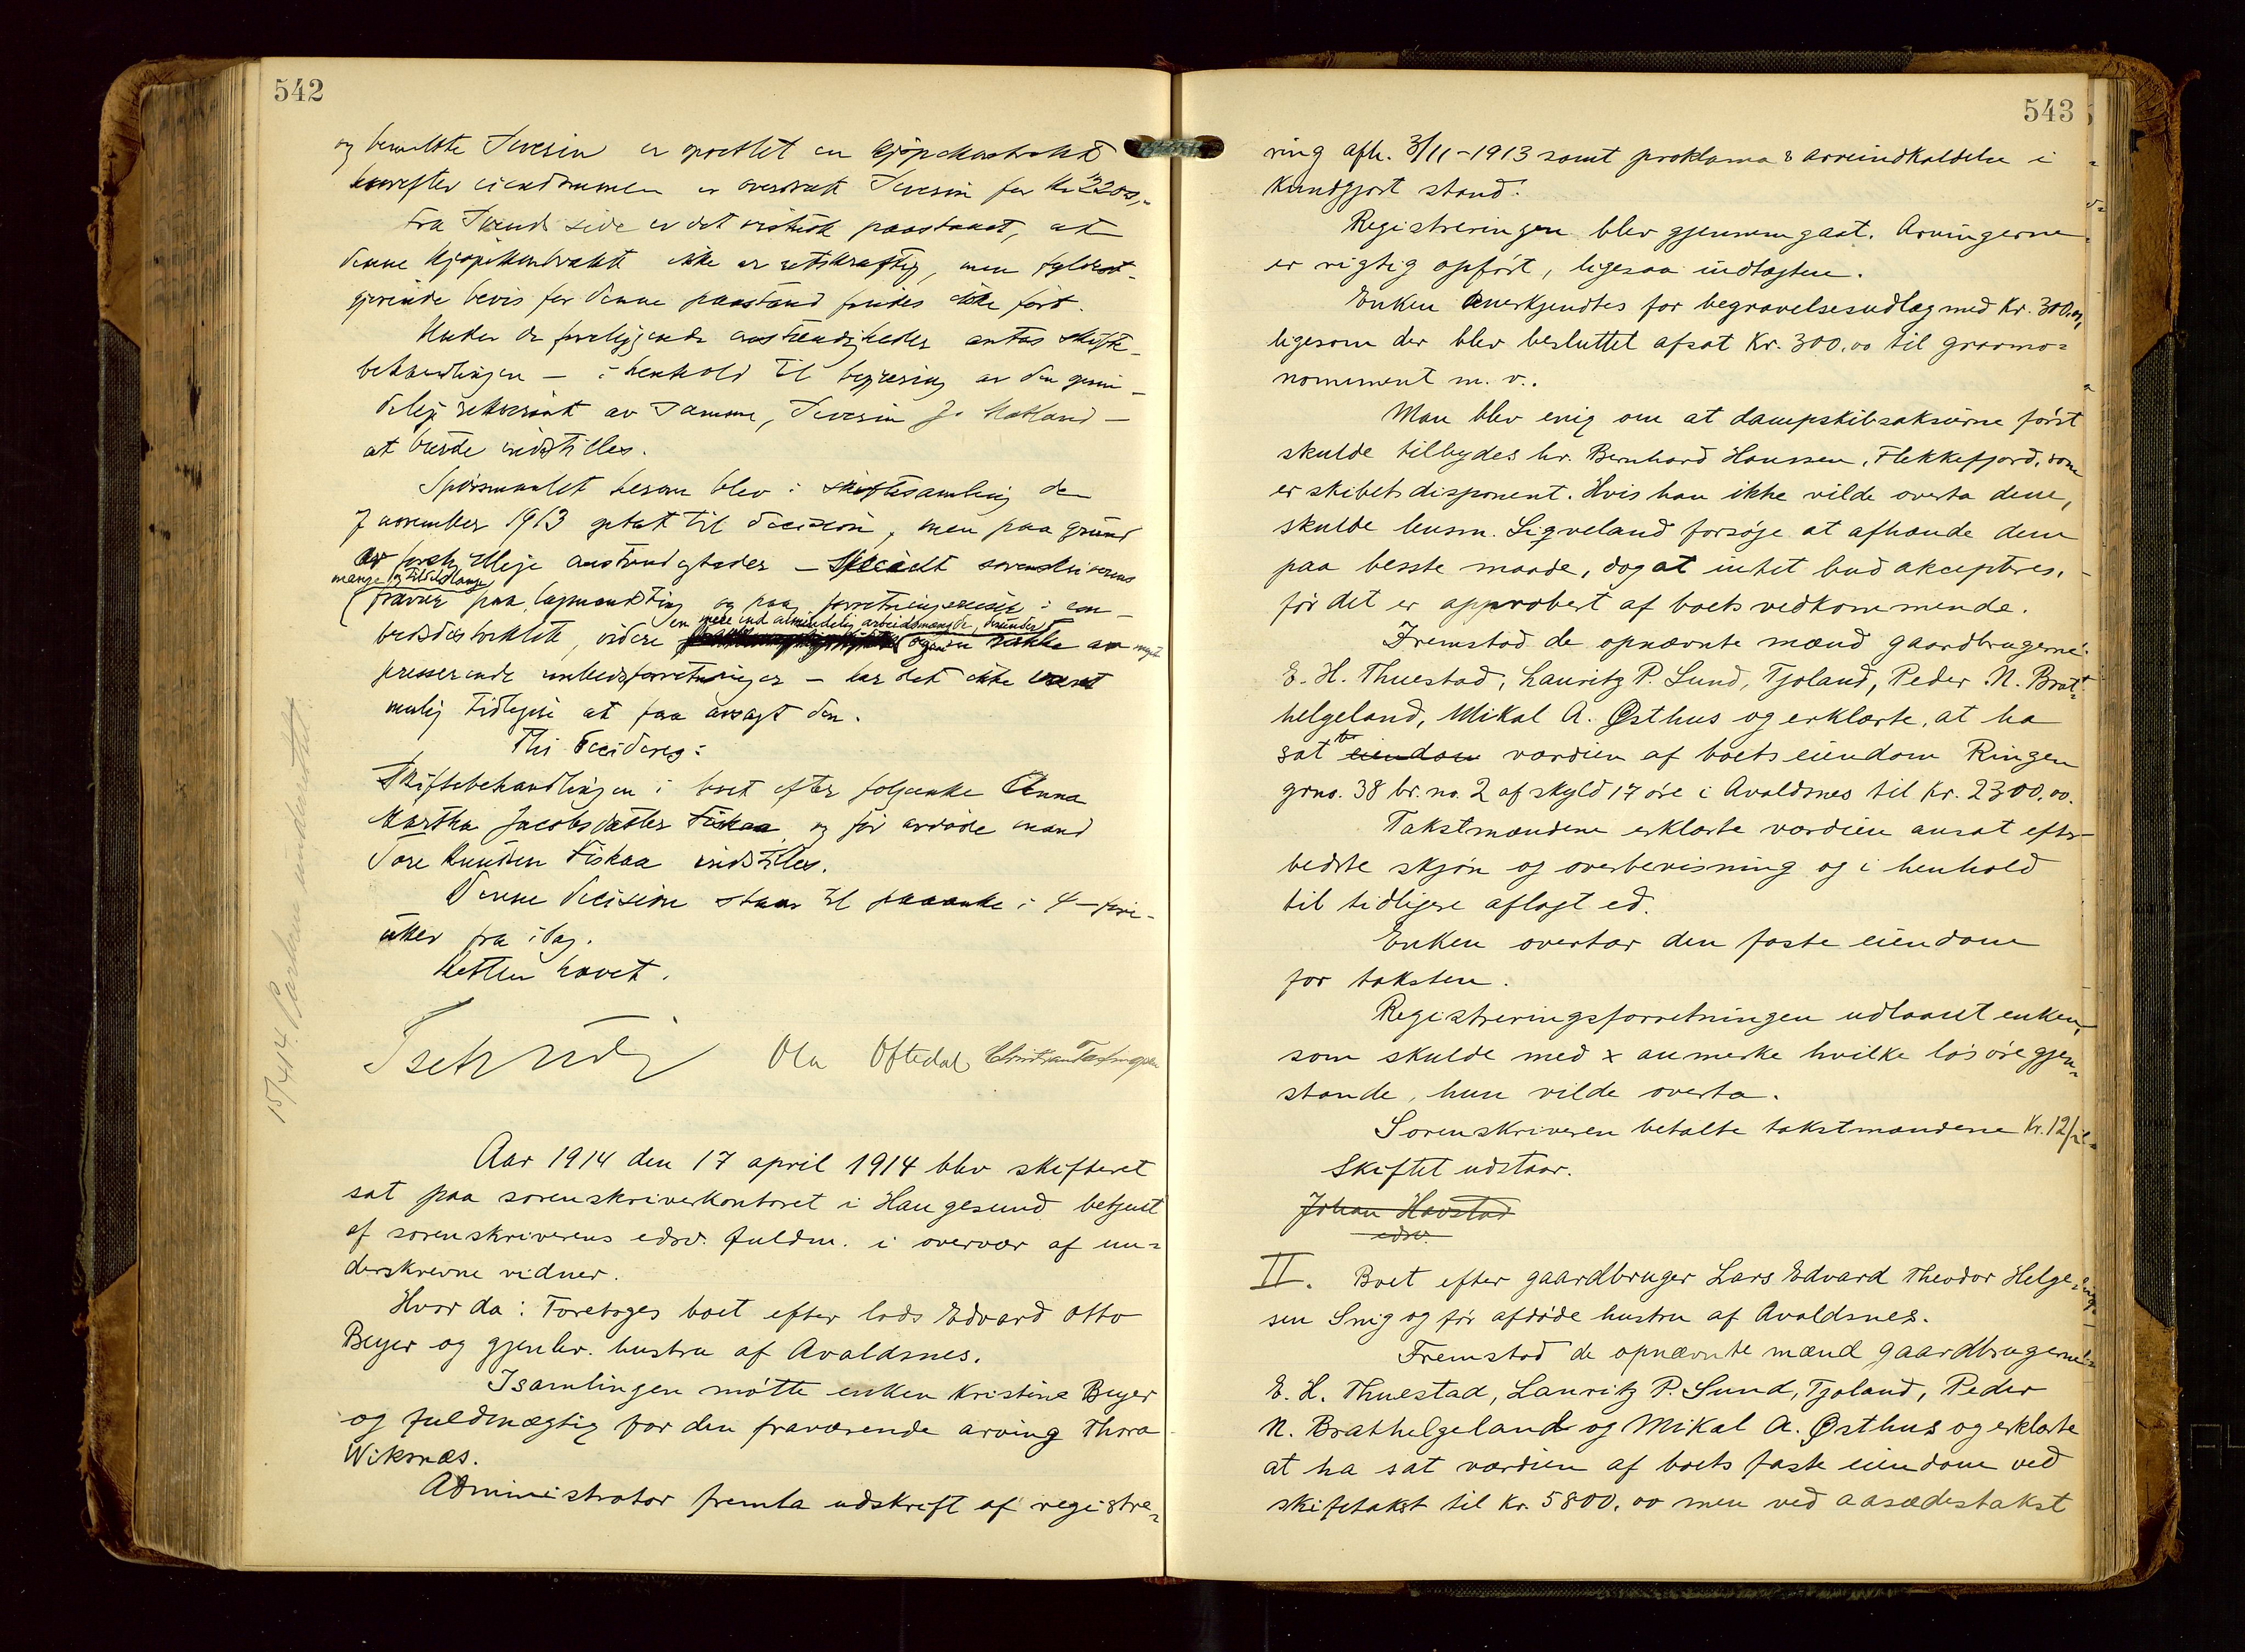 542
og bemeldte Severin er oprettet en kjøpekontrakt
hvorefter eiendommen er overdratt Severin for kr 2200,-
Fra Svends side er det vistnok paastaaet, at
denne kjøpekontrakt ikke er retskraftig, men fyldest-
gjørende bevis for denne paastand findes ikke ført.
Under de foreliggende omstændigheder antas skifte-
behandlingen – i henhold til begjæring av den
rekvirent av samme, Severin J. Matland –
at burde indstilles.
Spørsmaalet herom blev i skiftesamling den
7 november 1913 optat til decision, men paa grund
av forskjellige omstændigheder – specielt sorenskriverens
mange og tildels lange
fravær paa lagmandsting og paa forretningsreiser i em-
en mere end almindelig arbeidsmængde, derunder
bedsdistriktet, videre ogsaa en række av meget
presserende embedsforretninger – har det ikke været
mulig tidligere at faa avsagt den.
Thi decideres:
Skiftebehandlingen i boet efter folgeenke Anna
Martha Jacobsdatter Fiskaa og før avdøde mand
Tore Knudsen Fiskaa indstilles.
Denne decision staar til paaanke i 4–fire-
uker fra idag.
Retten hævet.
Tschudi Ola Oftedal
15/4 14. Parterne underrettet.
Aar 1914 den 17 april 1914 blev skifteret
sat paa sorenskriverkontoret i Haugesund betjent
af sorenskriverens edsv. fuldm. i overvær af un=
derskrevne vidner.
Hvor da: Foretoges boet efter lods Edvard Otto
Beyer og gjenlev. hustru af Avaldsnes.
I samlingen møtte enken Kristine Beyer
og fuldmægtig for den fraværende arving Thora
Wiksnæs.
Administrator fremla udskrift af registre=
543
ring afh. 3/11-1913 samt proklama & arveindkaldelse i
kundgjort stand.
Registreringen blev gjennemgaat. Arvingerne
er rigtig opført, ligesaa indtægten.
Enken anerkjendtes for begravelsesudlæg med Kr. 300,00,
ligesom der blev besluttet afsat Kr. 300,00 til gravmo=
nomument m. v..
Man blev enig om at dampskibsaksierne først
skulde tilbydes hr. Bernhard Hanssen, Flekkefjord, som
er skibets disponent. Hvis han ikke vilde overta dem,
skulde lensm. Ligveland forsøge at afhænde dem
paa bedste maade, dog at intet bud akcepteres,
før det er approbert af boets vedkommende.
Fremstod de opnævnte mænd gaardbrugerne
E. H. Thuestad, Lauritz P. Lund, Tjoland, Peder N. Brat=
helgeland, Mikal A. Østhus og erklærte, at ha
sat eiendom værdien af boets eiendom Ringen
grno. 38 br. no. 2 af skyld 17 øre i Avaldsnes til Kr. 2300,00.
Takstmændene erklærte værdien ansat efter
bedste skjøn og overbevisning og i henhold
til tidligere aflagt ed.
Enken overtar den faste eiendom
for taksten.
Registreringsforretningen udlaant enken,
som skulde med x anmerke hvilke løsøregjen=
stande, hun vilde overta.
Sorenskriveren betalte takstmændene Kr. 12/
Skiftet udstaar.
Johan Havstad
edsv.
II. Boet efter gaardbruger Lars Edvard Theodor Helge=
sen Snig og før afdøde hustru af Avaldsnes.
Fremstod de opnævnte mænd gaardbrugerne
E. H. Thuestad, Lauritz P. Lund, Tjoland, Peder
N. Brathelgeland og Mikal A. Østhus og erklærte
at ha sat værdien af boets faste eiendom ved
skiftetakst til Kr. 5800,00 men ved aasædestakst